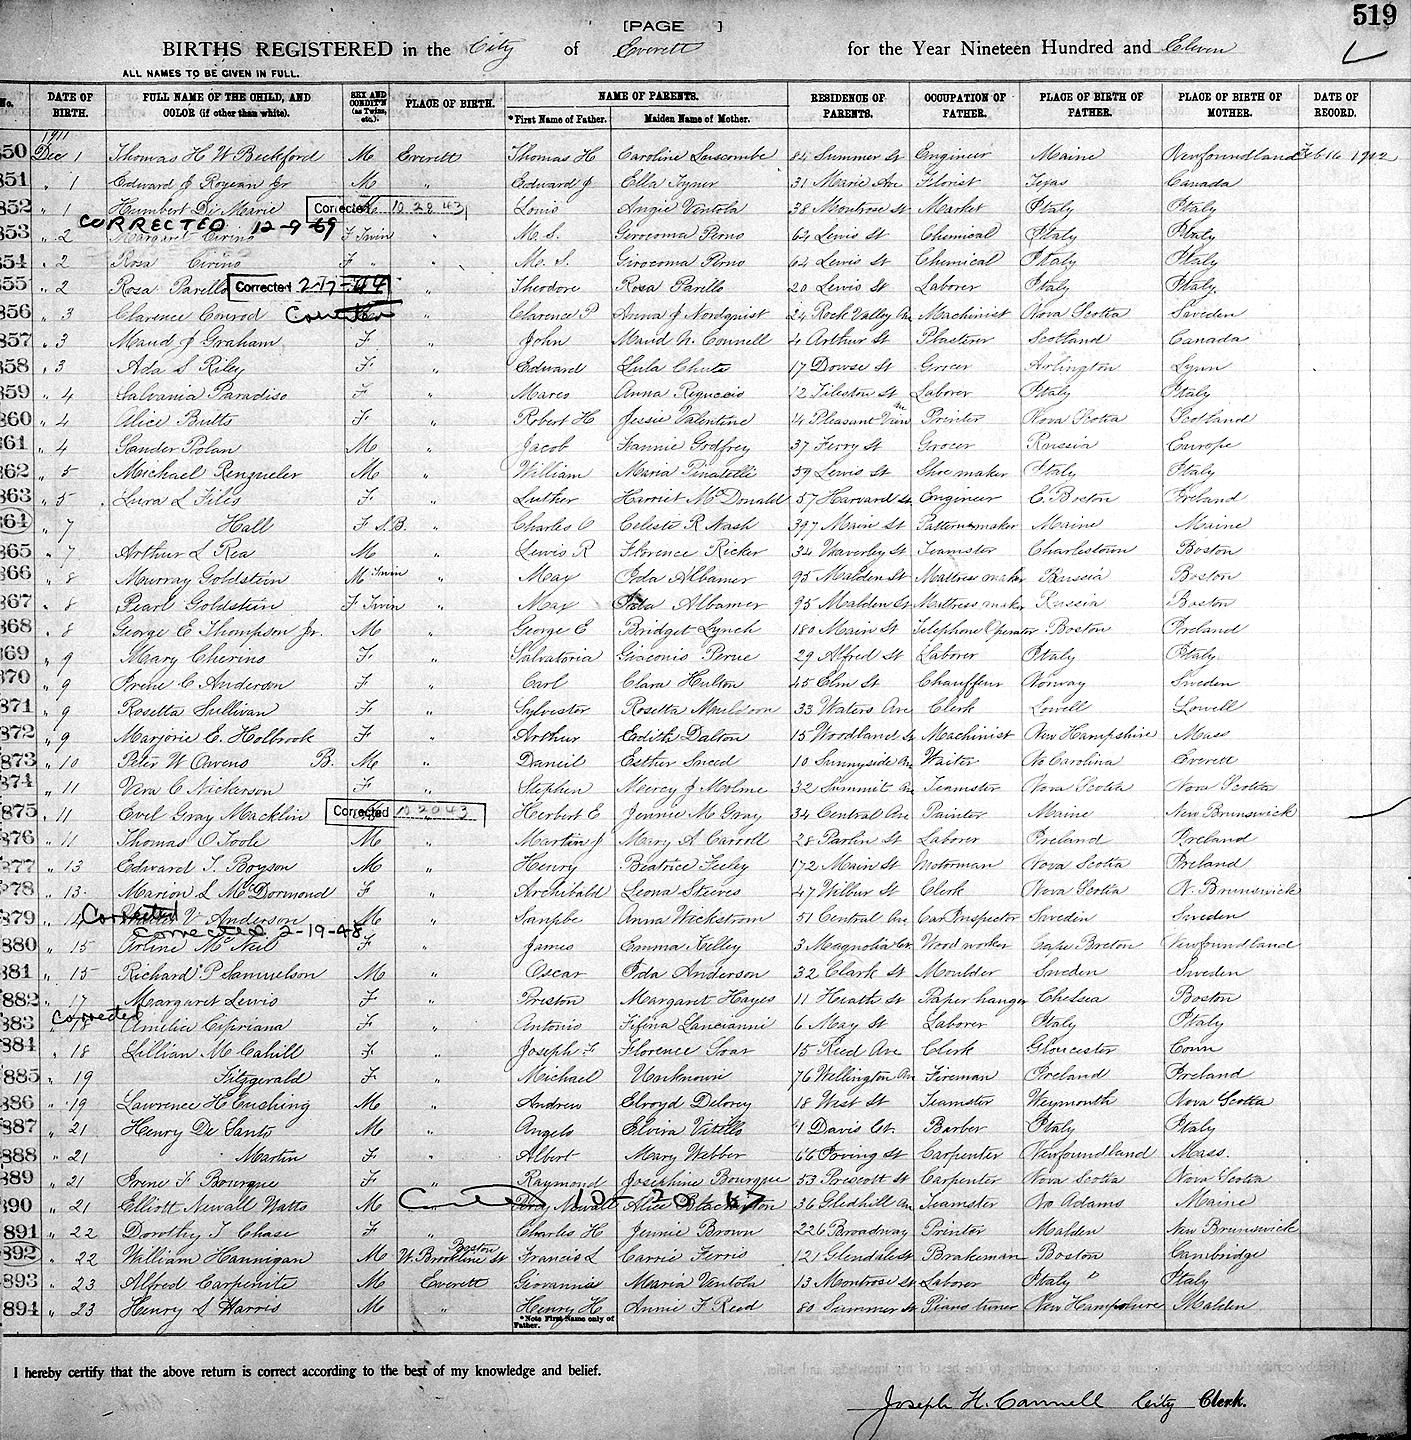 519
[PAGE ]
BIRTHS REGISTERED in the City of Everett for the Year Nineteen Hundred and Eleven
ALL NAMES TO BE GIVEN IN FULL.
No. DATE OF BIRTH. FULL NAME OF THE CHILD, AND COLOR (if other than white). SEX AND CONDIT'N (as Twins, etc.) PLACE OF BIRTH. NAME OF PARENTS. *First Name of Father. Maiden Name of Mother. RESIDENCE OF PARENTS. OCCUPATION OF FATHER. PLACE OF BIRTH OF FATHER. PLACE OF BIRTH OF MOTHER. DATE OF RECORD.
1911
850 Dec 1 Thomas H W Beckford M Everett Thomas H Caroline Luscombe 84 Summer St Engineer Maine Newfoundland Feb 16 1912
851 " 1 Edward J Rozean Jr M " Edward J Ella Tyner 31 Marie Ave Florist Texas Canada
852 " 1 Humbert Di Marie Corrected 10 28 43 " Louis Angie Ventola 38 Montrose St Market Italy Italy
CORRECTED 12-9-69
853 " 2 Margaret Cirino F Twin " M. S. Girocoma Perno 64 Lewis St Chemical Italy Italy
854 " 2 Rosa Cirino F " " M. S. Girocoma Perno 64 Lewis St Chemical Italy Italy
855 " 2 Rosa Parello Corrected 2-17-44 " Theodore Rosa Parello 20 Lewis St Laborer Italy Italy
856 " 3 Clarence Conrod " Clarence P Anna J Nordquist 24 Rock Valley Ave Machinist Nova Scotia Sweden
857 " 3 Maud J Graham F " John Maud N. Connell 4 Arthur St Plasterer Scotland Canada
858 " 3 Ada S Riley F " Edward Lula Chute 17 Dowse St Grocer Arlington Lynn
859 " 4 Salvania Paradiso F " Marco Anna 12 Tileston St Laborer Italy Italy
860 " 4 Alice Butts F " Robert H Jessie Valentine 14 Pleasant View Ave Printer Nova Scotia Scotland
861 " 4 Sander Polan M " Jacob Fannie Godfrey 37 Ferry St Grocer Russia Europe
862 " 5 Michael Renzueler M " William Maria Pinatelli 59 Lewis St Shoemaker Italy Italy
863 " 5 Lura L Files F " Luther Harriet McDonald 57 Harvard St Engineer C. Breton Ireland
864 " 7 Hall F S.B. " Charles O Celeste R Nash 397 Main St Patternmaker Maine Maine
865 " 7 Arthur L Rea M " Lewis R Florence Ricker 34 Waverley St Teamster Charlestown Boston
866 " 8 Murray Goldstein M Twin " Max Ida Albamer 95 Malden St Mattress maker Russia Boston
867 " 8 Pearl Goldstein F Twin " Max Ida Albamer 95 Malden St Mattress maker Russia Boston
868 " 8 George E Thompson Jr. M " George E Bridget Lynch 180 Main St Telephone Operator Boston Ireland
869 " 9 Mary Cherino F " Salvatoria Giaconis Perne 29 Alfred St Laborer Italy Italy
870 " 9 Irene C Anderson F " Carl Clara Hulton 45 Elm St Chauffeur Norway Sweden
871 " 9 Rosetta Sullivan F " Sylvester Rosetta Muldoon 33 Waters Ave Clerk Lowell Lowell
872 " 9 Marjorie E. Holbrook F " Arthur Edith Dalton 15 Woodland St Machinist New Hampshire Mass
873 " 10 Peter W Owens B. M " Daneil Esther Sneed 10 Sunnyside Av Waiter No Carolina Everett
874 " 11 Vera C Nickerson F " Stephen Mercy J Molme 32 Summit Ave Teamster Nova Scotia Nova Scotia
875 " 11 Evel Gray Macklin Corrected 10 20 43 Herbert E Jennie M Gray 34 Central Ave Painter Maine New Brunswick
876 " 11 Thomas O Toole M " Martin J Mary A Carroll 28 Parlin St Laborer Ireland Ireland
877 " 13 Edward T. Boyson M " Henry Beatrice Feeley 172 Main St Motorman Nova Scotia Ireland
878 " 13 Marion L McDormond F " Archibald Leona Steeves 47 Wilbur St Clerk Nova Scotia N. Brunswick
879 " 14 Corrected V Anderson M " Anna Wickstrom 51 Central Ave Car Inspector Sweden Sweden
Corrected 2-19-48
880 " 15 Arline McNeil F " James Emma Kelley 3 Magnolia Cr. Wood worker Cape Breton Newfoundland
881 " 15 Richard P Samuelson M " Oscar Ida Anderson 32 Clark St Moulder Sweden Sweden
882 " 17 Margaret Lewis F " Preston Margaret Hayes 11 Heath St Paper hanger Chelsea Boston
Corrected
883 " 18 Amelia Cipriana F " Antonio Fifina Lancianni 6 May St Laborer Italy Italy
884 " 18 Lillian M Cahill F " Joseph F Florence Soar 15 Reed Ave Clerk Gloucester Conn
885 " 19 Fitzgerald F " Michael Unknown 76 Wellington Av Fireman Ireland Ireland
886 " 19 Lawrence H Cushing M " Andrew Elroyd Delorey 18 West St Teamster Weymouth Nova Scotia
887 " 21 Henry De Santo M " Angelo Elvira Vitello 1 Davis Ct. Barber Italy Italy
888 " 21 Martin F " Albert Mary Webber 66 Irving St Carpenter Newfoundland Mass.
889 " 21 Irene F Bourque F " Raymond Josephine Bourque 53 Prescott St Carpenter Nova Scotia Nova Scotia
890 " 21 Elliott Newall Watts M Newall Alice Blackinton 36 Gledhill Av Teamster No Adams Maine
891 " 22 Dorothy T Chase F " Charles H Jennie Brown 226 Broadway Printer Malden New Brunswick
892 " 22 William Hannigan M W. Brookline St Boston Francis L Carrie Ferris 121 Glendale St Brakeman Boston Cambridge
893 " 23 Alfred Carpenite M Everett Giovannia Maria Ventola 13 Montrose St Laborer Italy Italy
894 " 23 Henry S Harris M " Henry H Annie F Reed 80 Summer St Piano tuner New Hampshire Malden
*Note First Name only of Father.
I hereby certify that the above return is correct according to the best of my knowledge and belief.
Joseph H. Cannell City Clerk.